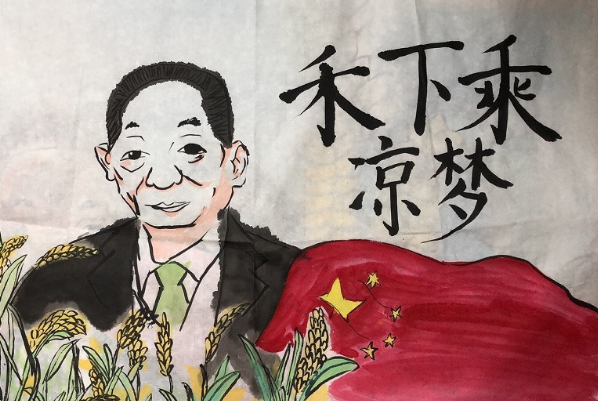 禾下乘
凉梦